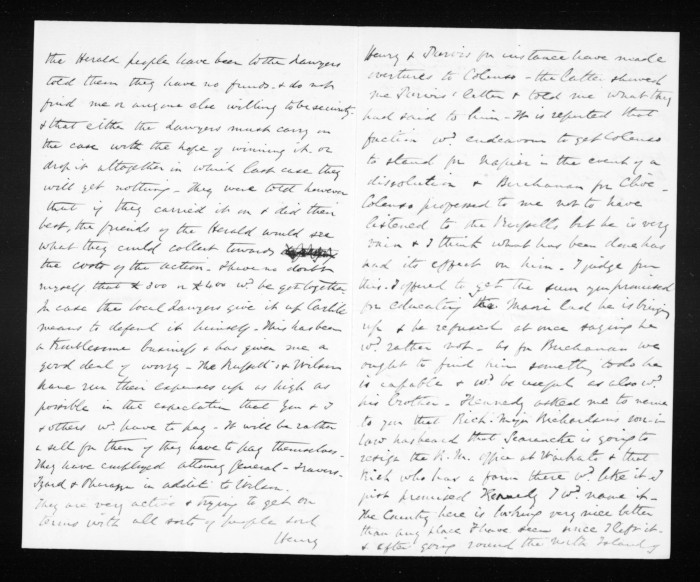 the Herald people have been to the Lawyers
told them they have no funds & do not
find me or anyone else willing to be security
& that either the Lawyers must carry on
the case with the hope of winning it or
drop it altogether in which last case they
will get nothing - They were told however
that if they carried it on & did their
best, the friends of the Herald would see
what they could collect towards
the costs of the action. I have no doubt
myself that £300 or £400 wd. be got together
In case the local Lawyers give it up Carlile
means to defend it himself - This has been
a troublesome business & has given me a
good deal of worry - The Russells & Wilson
have run their expenses up as high as
possible in the expectation that you & I
& others wd. have to pay - It will be rather
a sell for them if they have to pay themselves -
They have employed Attorney General - Travers -
Izard & in addit. to Wilson.
They are very active & trying to get on
terms with all sorts of people such
Henry
Henry & Purvis for instance have made
overtures to Colenso - the latter showed
me Purvis' letter & told me what they
had said to him - It is reported that
faction wd. endeavour to get Colenso
to stand for Napier in the event of a
dissolution & Buchanan for Clive -
Colenso professed to me not to have
listened to the Russells but he is very
vain & I think what has been done has
had its effect on him - I judge from
this. I offered to get the sum you promised
for educating the Maori lad he is bringing
up & he refused at once saying he
wd. rather not - as for Buchanan we
ought to find him something to do he
is capable & wd. be useful as also wd.
his brother - Kennedy asked me to name
to you that Rich: Major Richardson's son in
law has heard that Searancke is going to
resign the R.M. office at Waikato & that
Rich who has a farm there wd. like it. I
just promised Kennedy I wd. name it -
The Country here is looking very nice better
than any place I have seen since I left it -
& after going round the North Island of